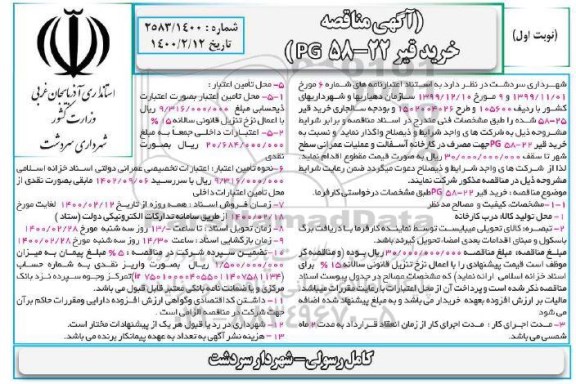 (آگهی مناقصه
خرید قیر ۲۲-۵۸ PG)
(نوبت اول)
شماره: ۲۵۸۳/۱۴۰۰
تاریخ ۱۴۰۰/۲/۱۲
استانداری آذربایجان غربی
وزارت کشور
شهرداری سردشت
شهرداری سردشت در نظر دارد به استناد اعتبارنامه های شماره ۶ مورخ
۱۳۹۹/۱۱/۰۱ و ۹ مورخ ۱۳۹۹/۱۲/۱۰ سازمان دهیاریها و شهرداریهای
کشور با ردیف ۱۰۵۶۰۰ و طرح ۱۵۰۲۰۰۳۰۲۶ و بودجه سالجاری خرید قیر
شده را طبق مشخصات فنی مندرج در اسناد مناقصه و برابر شرایط
مشروحه ذیل به شرکت های واجد شرایط و ذیصلاح واگذار نماید و نسبت به
خرید قیر ۲۲-۵۸ PG جهت مصرف در کارخانه آسفالت و عملیات عمرانی سطح
شهر تا سقف ۳۰/۰۰۰/۰۰۰/۰۰۰ ریال به صورت قیمت مقطوع اقدام نماید.
لذا از شرکت های واجد شرایط و ذیصلاح دعوت میگردد ضمن رعایت شرایط
مشروحه ذیل در مناقصه مذکور شرکت نمایند.
موضوع مناقصه: خرید قیر ۲۲-۵۸ PG طبق مشخصات درخواستی کارفرما.
۱-۱-مشخصات، کیفیت و مصالح مد نظر
۱- محل تولید کالا: درب کارخانه
۲- تبصره: کالای تحویلی میبایست توسط نماینده کارفرما با دریافت برگ
باسکول و مبنای اقدامات بعدی امضا، تحویل گیرند باشد.
مبلغ مناقصه: مبلغ مناقصه ۳۰/۰۰۰/۰۰۰/۰۰۰ ریال بوده (و مناقصه گر
موظف است قیمت پیشنهادی را با اعمال نرخ تنزیل قانونی سالانه ۱۵% برای
اسناد خزانه اسلامی ارائه نماید) که مشخصات مصالح در جدول پیوست اسناد
مناقصه ذکر شده است و پرداخت آن از محل اعتبارات با رعایت مقررات میباشد
مالیات بر ارزش افزوده بعهده خریدار می باشد و به مبلغ پیشنهاد شده اضافه
می شود
۳- مدت اجرای کار: مدت اجرای کار از زمان انعقاد قرارداد به مدت ۲ ماه
شمسی می باشد.
۵- محل تامین اعتبار:
۵-۱- محل تامین اعتبار بصورت اعتبارات
ذیحسابی مبلغ ۹/۳۱۶/۰۰۰/۰۰۰ ریال
با اعمال نرخ تنزیل قانونی سالانه ۱۵%
۵-۲- اعتبارات داخلی جمعاً به مبلغ
۲۰/۶۸۴/۰۰۰/۰۰۰ ریال بصورت
نقدی
۶-نحوه تامین اعتبار: اعتبارات تخصیصی عمرانی دولتی اسناد خزانه اسلامی
۹/۳۱۶/۰۰۰/۰۰۰ ریال با سررسید ۱۴۰۲/۰۹/۰۶ مابقی بصورت نقدی از
محل تامین اعتبارات داخلی
۷- زمان فروش اسناد: همه روزه از تاریخ ۱۴۰۰/۰۲/۱۲ لغایت مورخ
۱۴۰۰/۰۲/۱۸ از طریق سامانه تدارکات الکترونیکی دولت (ستاد)
۸- زمان تحویل اسناد: تا ساعت ۱۳:۰۰ روز سه شنبه مورخ ۱۴۰۰/۰۲/۲۸
۹- زمان بازگشایی اسناد: ساعت ۱۴/۳۰ روز سه شنبه مورخ ۱۴۰۰/۰۲/۲۸
۱۰- تضمین سپرده شرکت در مناقصه: ۵% مبلغ پیمان به میزان
۱/۵۰۰/۰۰۰/۰۰۰ ریال بصورت واریز نقدی به شماره حساب
مرکزی و یا ضمانت نامه بانکی معتبر قابل قبول می باشد.
۱۱- داشتن کد اقتصادی و گواهی ارزش افزوده دارایی و مقررات حاکم بر آن
جهت شرکت در مناقصه الزامی است.
۱۲- شهرداری در رد یا قبول هر یک از پیشنهادات مختار است.
۱۳- هزینه نشر آگهی به تعداد به عهده پیمانکار برنده می باشد.
کامل رسولی - شهردار سردشت